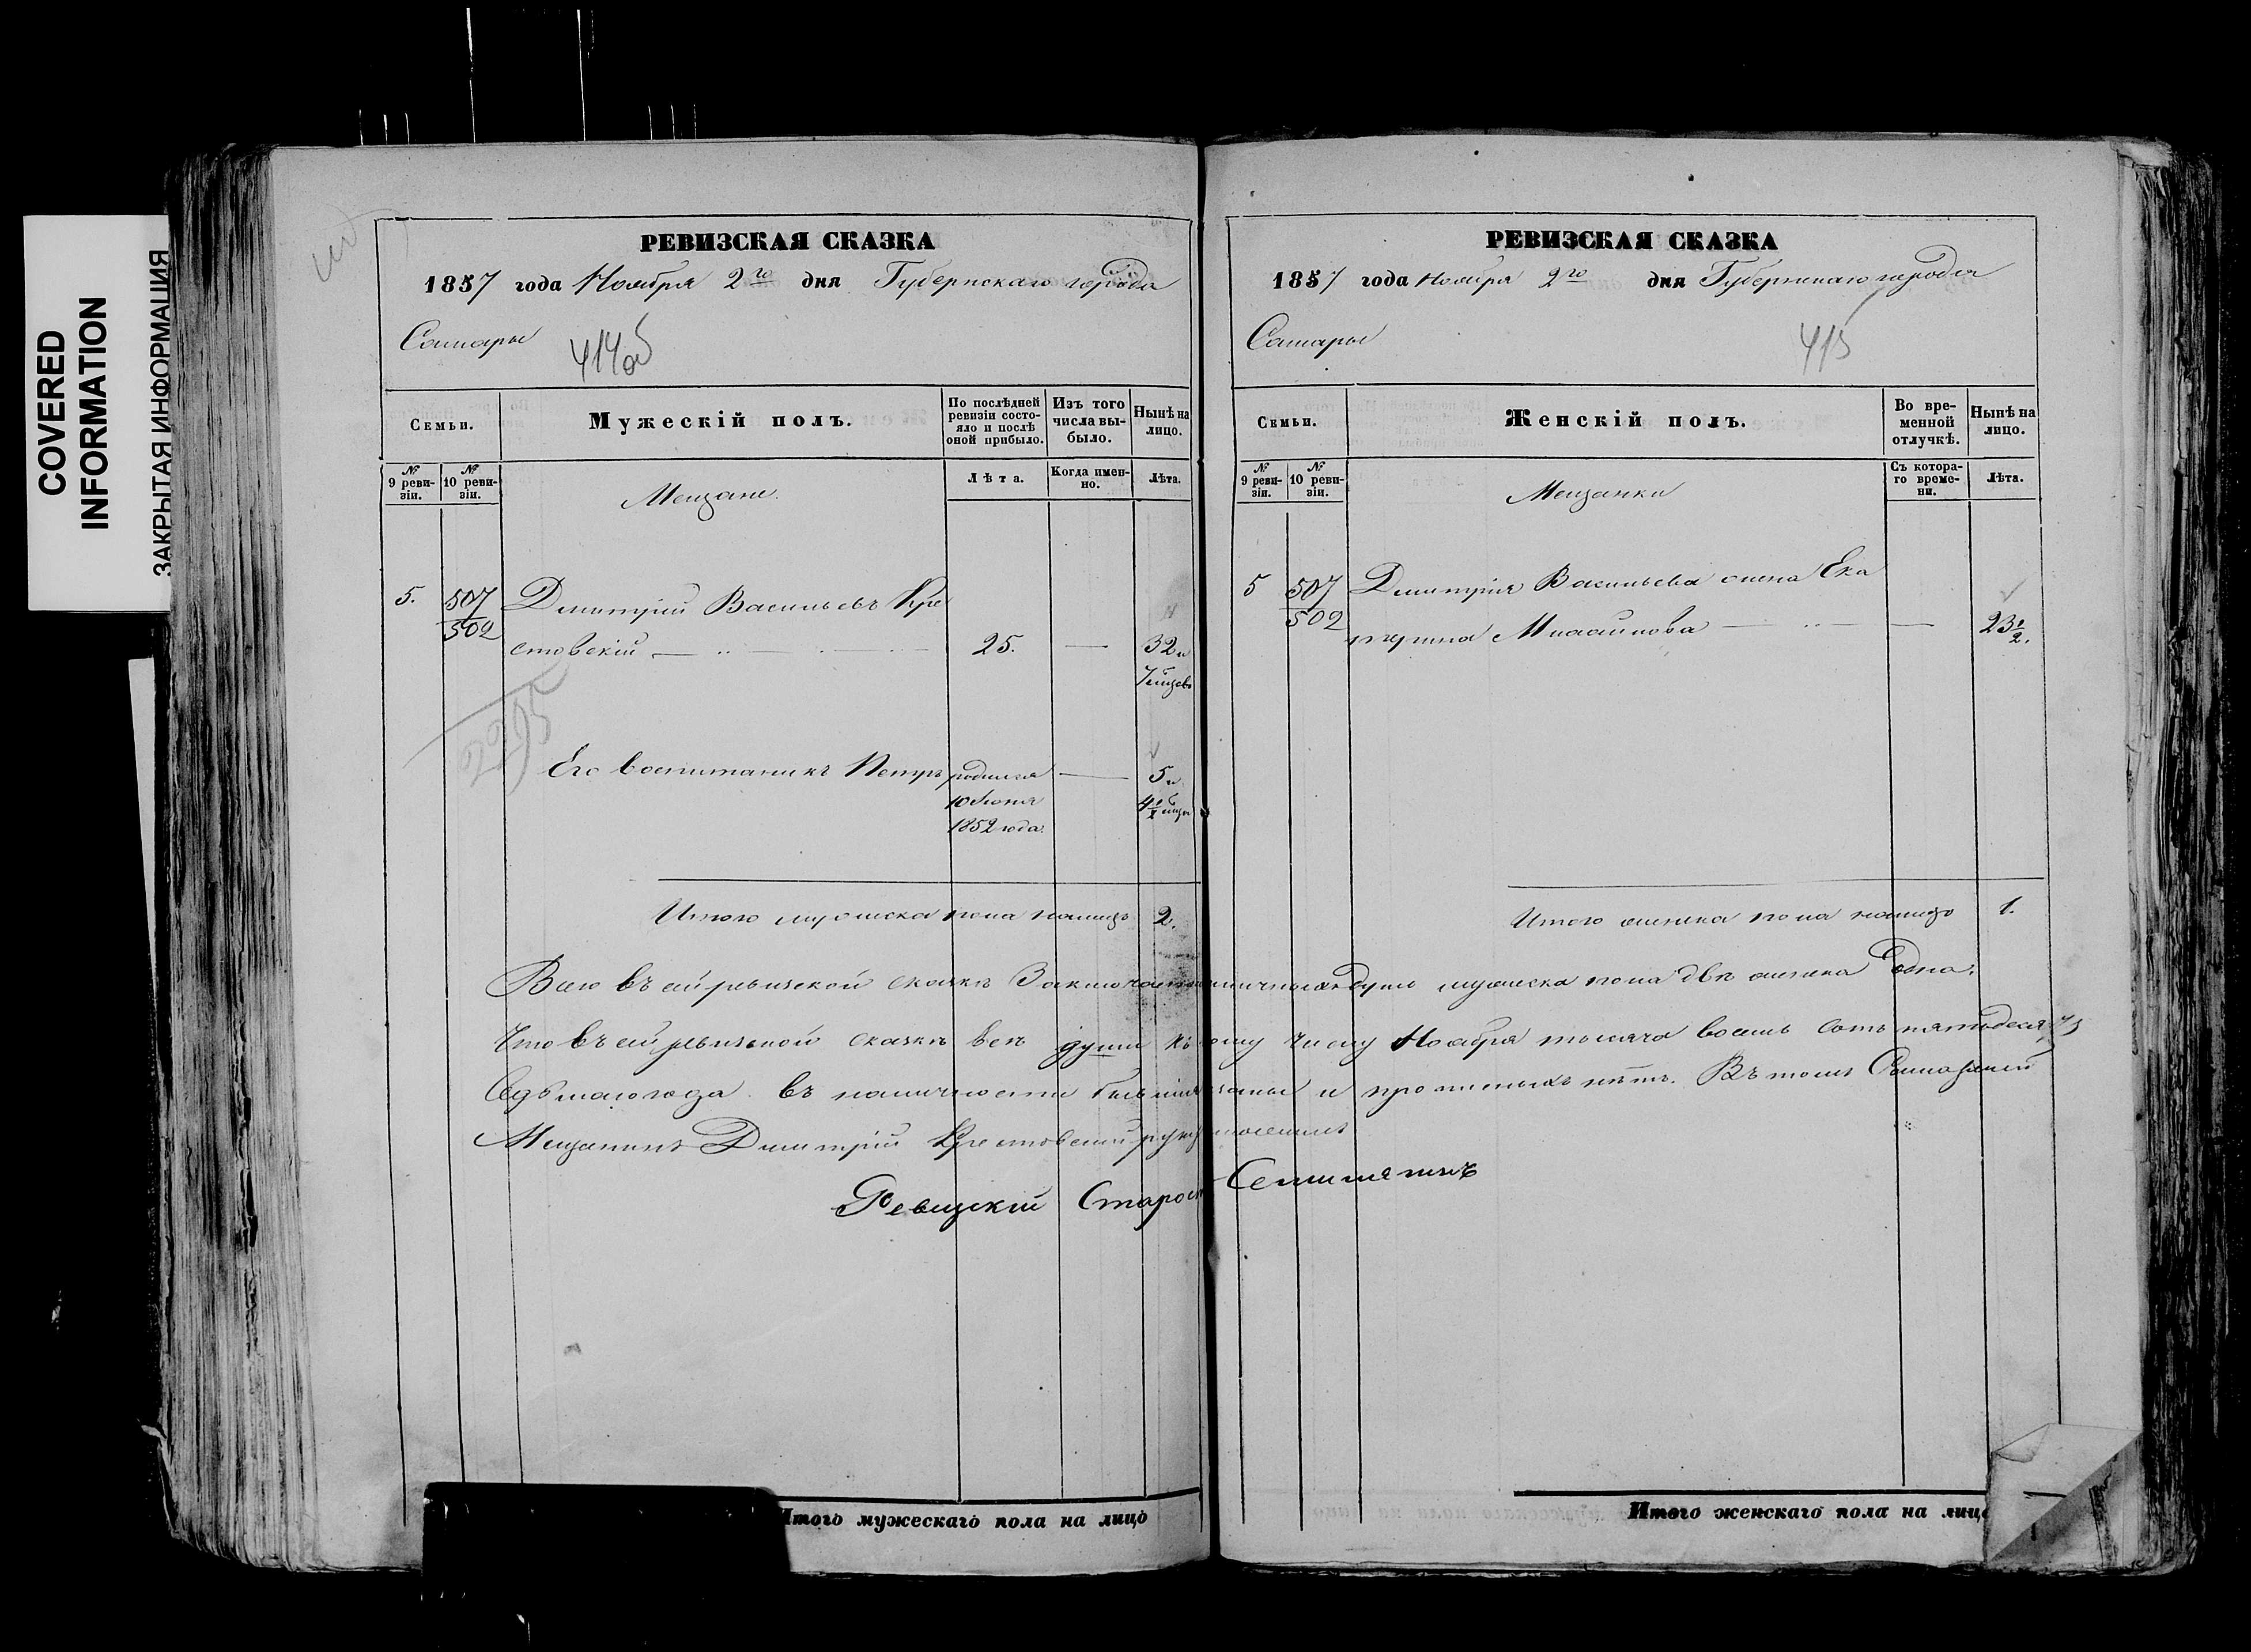 COVERED
INFORMATION
ЗАКРЫТАЯ ИНФОРМАЦИЯ
РЕВИЗСКАЯ СКАЗКА
1857 года Ноября 2го дня Губернскаго города
Самары
414об
Семьи.
Мужескій полъ.
По послѣдней ревизіи состояло и послѣ оной прибыло.
Изъ того числа выбыло.
Нынѣ на лицо.
№ 9 ревизіи.
№ 10 ревизіи.
Мещане.
Лѣта.
Когда именно.
Лѣта.
5. 507 Дмитрій Васильевъ Кре
502 стовскій 25. 32 и
7 мцевъ
2295
Его воспитаникъ Петръ родился 5 и
10 Июня 4½ мцы
1852 года.
Итого мужеска пола налицо 2.
РЕВИЗСКАЯ СКАЗКА
1857 года Ноября 2го дня Губернскаго города
Самары
415
Семьи.
Женскій полъ.
Во временной отлучкѣ.
Нынѣ на лицо.
№ 9 ревизіи.
№ 10 ревизіи.
Мещанки
Съ котораго времени.
Лѣта.
5 507 Дмитрія Васильева жена Ека
502 терина 23½.
Итого женска пола налицо 1.
Всего въ сей ревизской сказкѣ Заключается наличныхъ душъ мужеска пола двѣ женска Одна.
Что въ сей ревизской сказкѣ всѣ души къ числу Ноября тысяча восемь сотъ пятьдесятъ
Седьмаго года въ наличности бывшія и прописныхъ нѣтъ. Въ томъ Самарскій
Мещанинъ Дмитрій Крестовскій руку приложилъ
Ревизскій Староста
Итого мужескаго пола на лицо
Итого женскаго пола на лицо